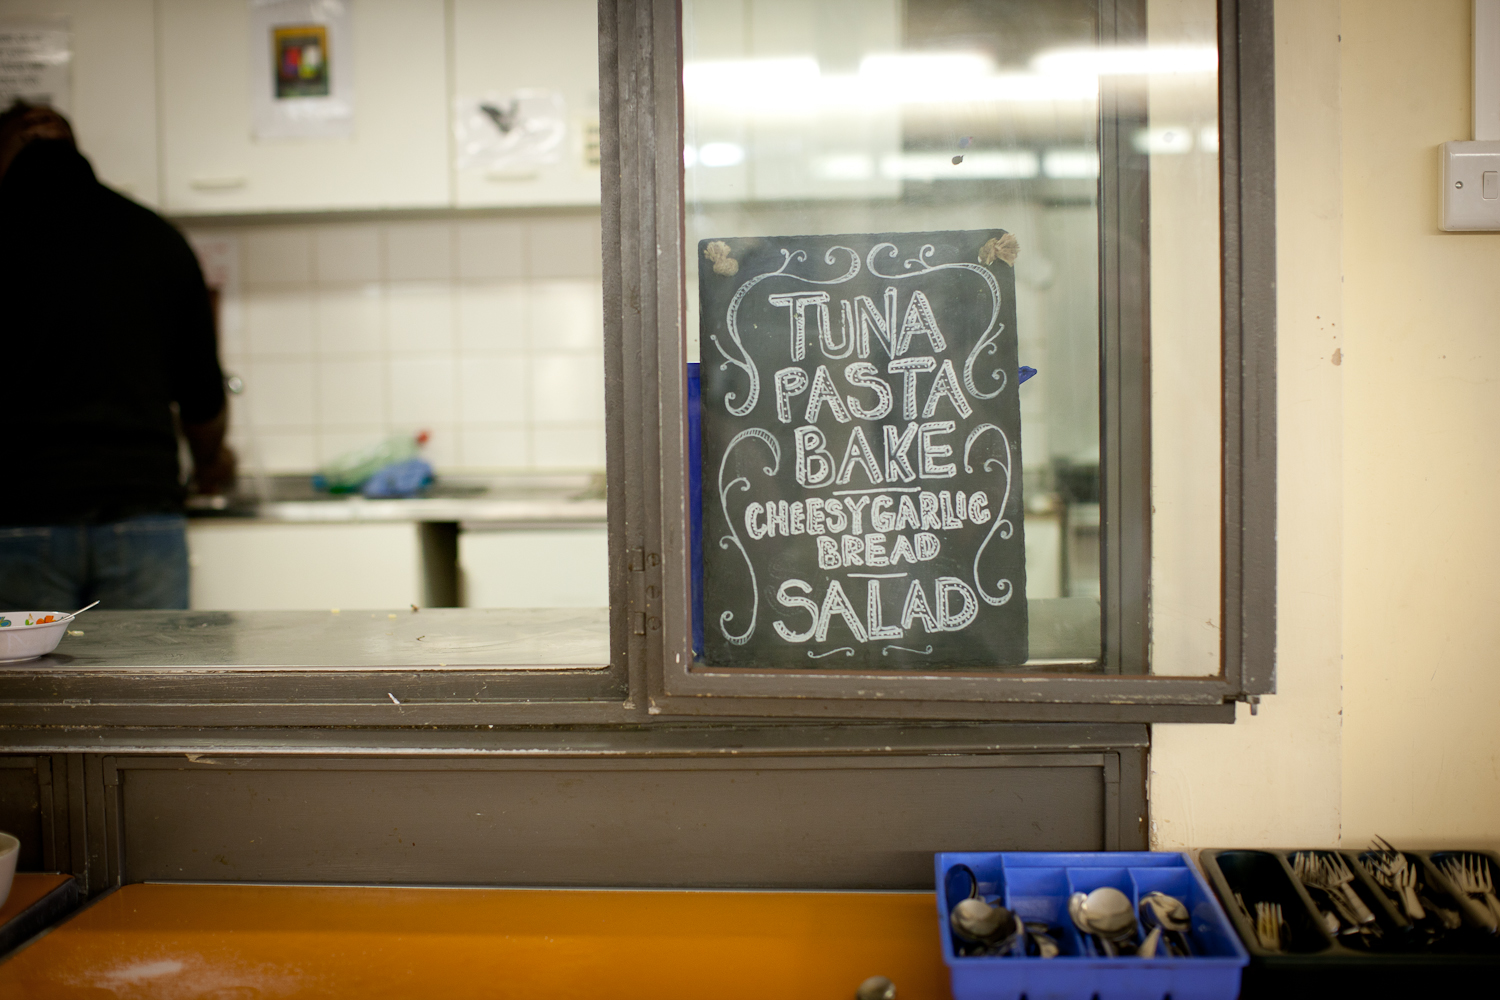 TUNA
PASTA
BAKE
CHEESY GARLIC
BREAD
SALAD